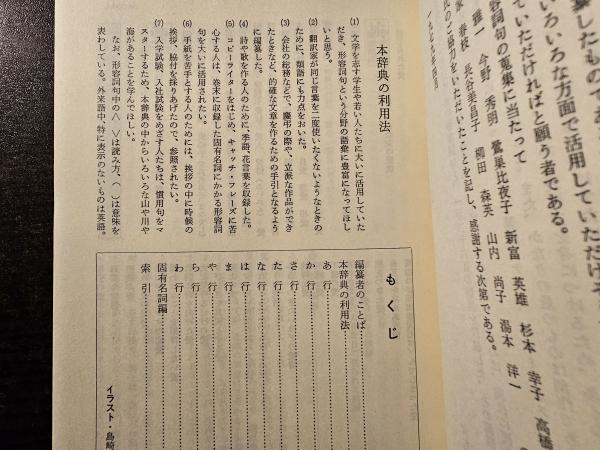 纂したものであ
いろいろな方面で活用していただけそ
ていただければと願う者である。
容詞句の蒐集に当たって
雅一 今野 秀明 鷲巣比夜子 新富 英雄 杉本 幸子 高橋
家 春枝 長谷美昌子 柳田 森英 山内 尚子 湯本 洋一
氏のご協力をいただいたことを記し、感謝する次第である。
一九七九年四月
本辞典の利用法
(1) 文学を志す学生や若い人たちに大いに活用していた
だき、形容詞句という分野の語彙に豊富になってほし
いと思う。
(2) 翻訳家が同じ言葉を二度使いたくないようなときの
ために、類語にも力点をおいた。
(3) 会社の総務などで、慶弔の際や、立派な作品ができ
たときなど、的確な文章を作るための手引となるよう
に編纂した。
(4) 詩や歌を作る人のために、季語、花言葉を収録した。
(5) コピーライターをはじめ、キャッチ・フレーズに苦
心する人は、巻末に収録した固有名詞にかかる形容詞
句を大いに活用されたい。
(6) 手紙を苦手とする人のためには、挨拶の中に時候の
挨拶、脇付を採りあげたので、参照されたい。
(7) 入学試験、入社試験をめざす人たちは、慣用句をマ
スターするため、本辞典の中からいろいろな山や川や
海があることを学んでほしい。
なお、形容詞句中の〈 〉は読み方、( )は意味を
表わしている。外来語中、特に表示のないものは英語。
もくじ
編纂者のことば
本辞典の利用法
あ行
か行
さ行
た行
な行
は行
ま行
や行
ら行
わ行
固有名詞編
索引
イラスト・島崎